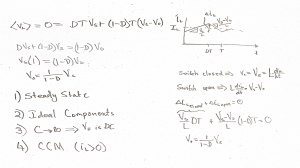 ⟨V_L⟩ = 0 = DTVg + (1-D)T(Vg-Vo)
DVg + (1-D)Vg = (1-D)Vo
Vg(1) = (1-D)Vo
Vo = 1/(1-D) Vg
1) Steady State
2) Ideal Components
3) C→∞ ⇒ Vo is DC
4) CCM (iL>0)
iL
DT T
t
Switch closed ⇒ VL = Vg = L di/dt
Switch open ⇒ L di/dt = Vg-Vo
ΔiLclosed + ΔiLopen = 0
Vg/L DT + (Vg-Vo)/L (1-D)T = 0
Vo = 1/(1-D) Vg